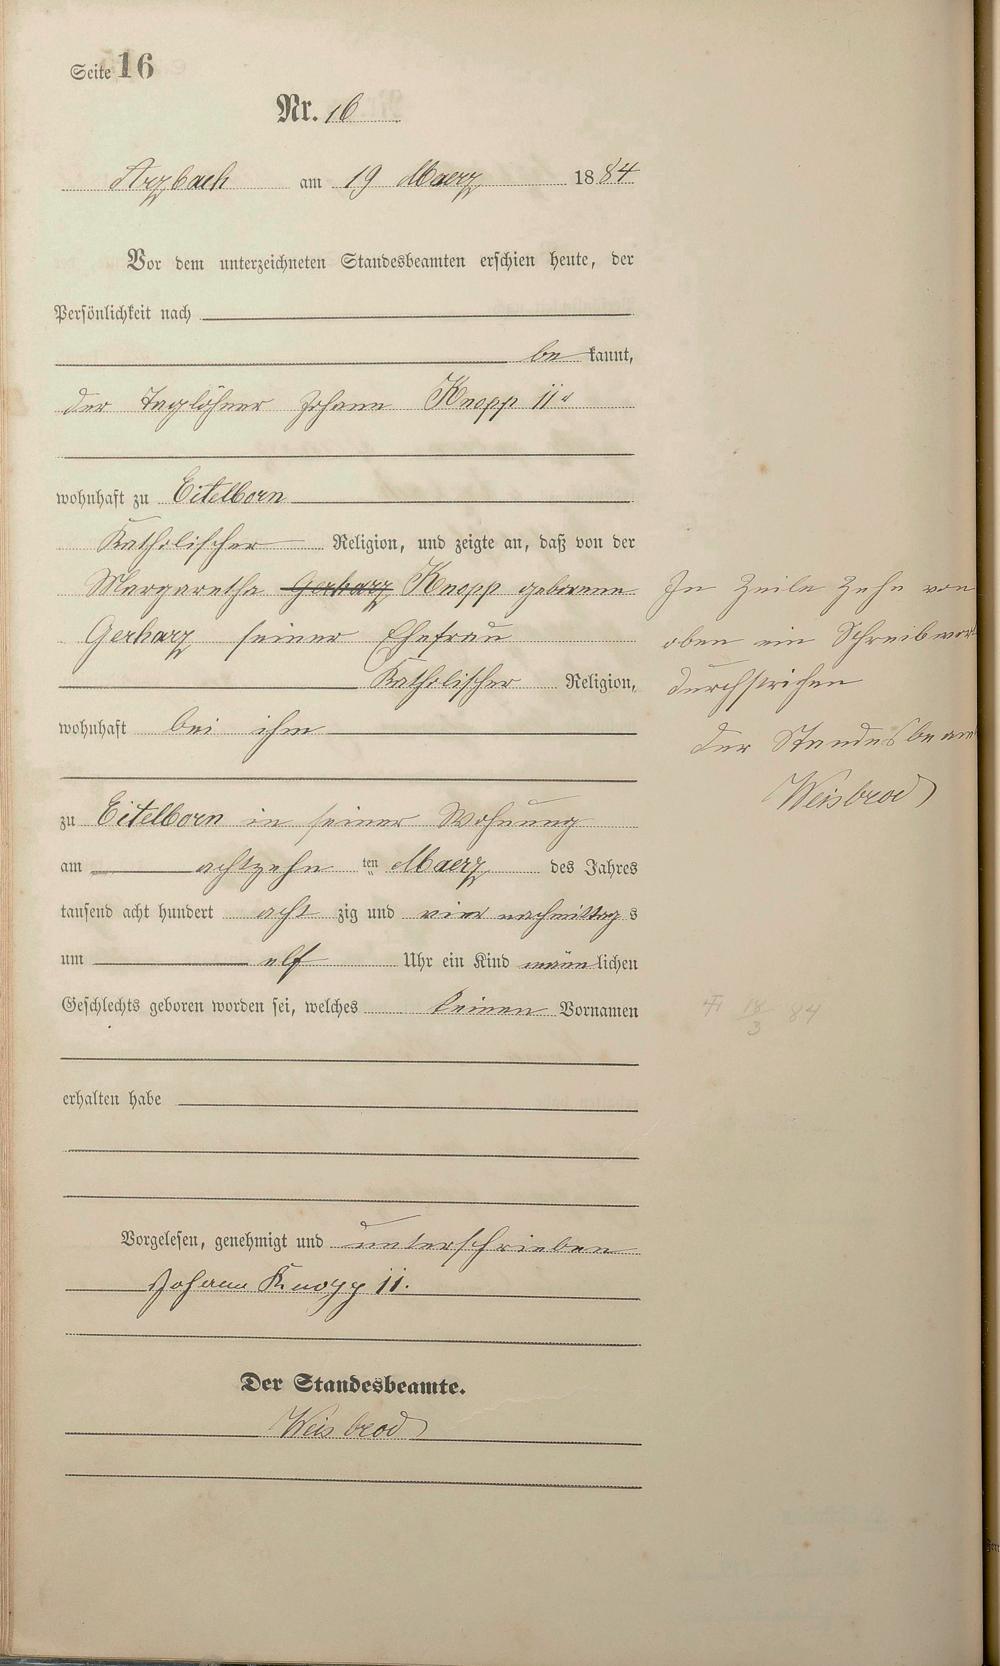 Seite 16
Nr. 16
Arzbach am 19 Maerz 1884
Vor dem unterzeichneten Standesbeamten erschien heute, der
Persönlichkeit nach
be kannt,
der Taglöhner Johann Knopp II
wohnhaft zu Eitelborn
Katholischer Religion, und zeigte an, daß von der
Margaretha Gerharz Knopp geborene
Gerharz seiner Ehefrau
Katholischer Religion,
wohnhaft bei ihm
zu Eitelborn in seiner Wohnung
am achtzehn ten Maerz des Jahres
tausend acht hundert acht zig und vier nachmittag s
um elf Uhr ein Kind männlichen
Geschlechts geboren worden sei, welches keinen Vornamen
erhalten habe
Vorgelesen, genehmigt und unterschrieben
Johann Knopp II.
Der Standesbeamte.
Weisbrod
In Zeile Zehn von
oben ein Schreibwort
durchstrichen
Der Standesbeam
Weisbrod
18/3 84